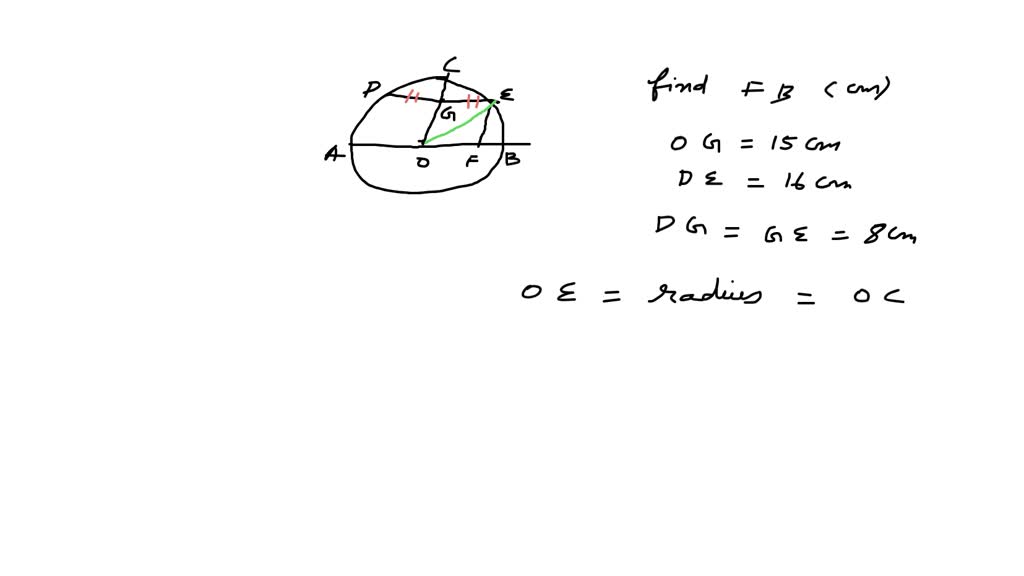 C
D E
G
A O F B
find FB (cm)
OG = 15 cm
DE = 16 cm
DG = GE = 8 cm
OE = radius = OC